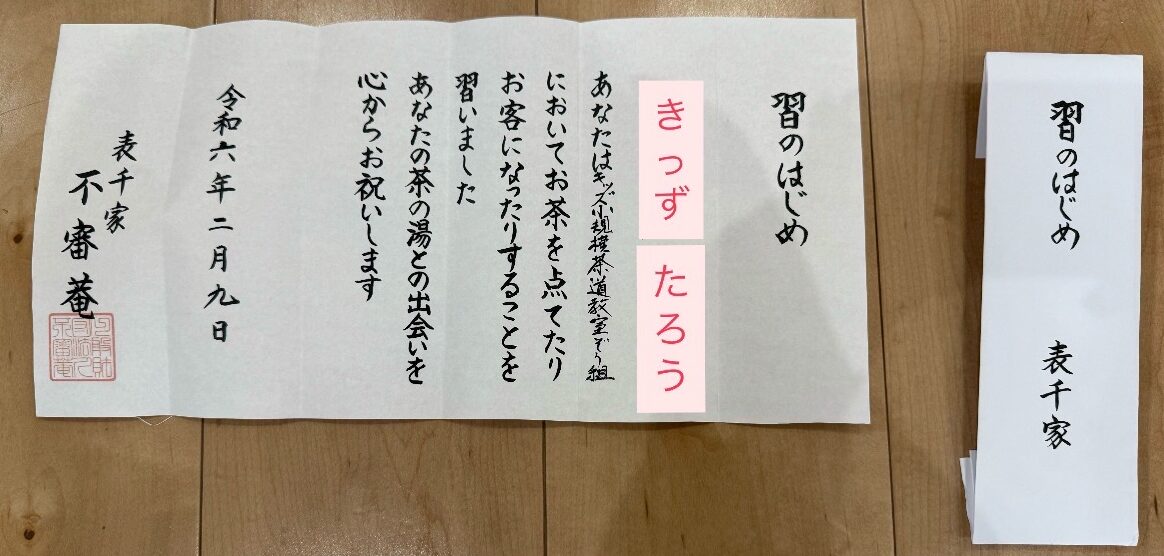 習のはじめ
表千家
習のはじめ
きっず たろう
あなたはキッズ小規模茶道教室ぞう組
においてお茶を点てたり
お客になったりすることを
習いました
あなたの茶の湯との出会いを
心からお祝いします
令和六年二月九日
表千家
不審菴